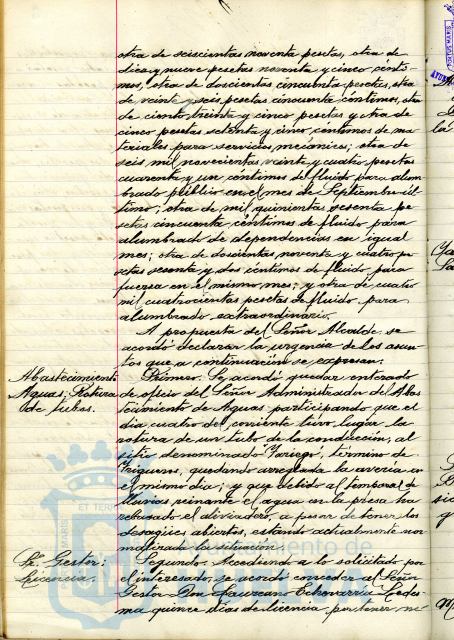 otra de seiscientas noventa pesetas, otra de
diez y nueve pesetas noventa y cinco cénti-
mos, otra de doscientas cincuenta pesetas, otra
de veinte y seis pesetas cincuenta céntimos, otra
de ciento treinta y cinco pesetas y otra de
cinco pesetas setenta y cinco céntimos de ma
teriales para servicios mecánicos; otra de
seis mil novecientas veinte y cuatro pesetas
cuarenta y un céntimos de fluido para alum
brado público en el mes de Septiembre úl-
timo; otra de mil quinientas sesenta pe
setas cincuenta céntimos de fluido para
alumbrado de dependencias en igual
mes; otra de doscientas noventa y cuatro pe
setas sesenta y dos céntimos de fluido para
fuerza en el mismo mes; y otra de cuatro
mil cuatrocientas pesetas de fluido para
alumbrado extraordinario.
A propuesta del Señor Alcalde se
acordó declarar la urgencia de los asun-
tos que a continuación se expresan:
Abastecimiento
Aguas: Rotura
de tubos.
Primero. Se acordó quedar enterado
de oficio del Señor Administrador del Abas
tecimiento de Aguas participando que el
dia cuatro del corriente tuvo lugar la
rotura de un tubo de la conducción, al
sitio denominado termino de
Trigueros, quedando arreglada la averia en
el mismo dia; y que debido al temporal de
lluvias reinante el agua en la presa ha
rebasado el aliviadero, a pesar de tener los
desagües abiertos, estando actualmente nor
malizada la situación.
Sr. Gestor:
Licencia.
Segundo. Accediendo a lo solicitado por
el interesado, se acordó conceder al Señor
Gestor Don Laureano Echevarria Ledes-
ma quince dias de licencia, por tener ne
PORTUS MARIS
ET TERRAE
Ayuntamiento de